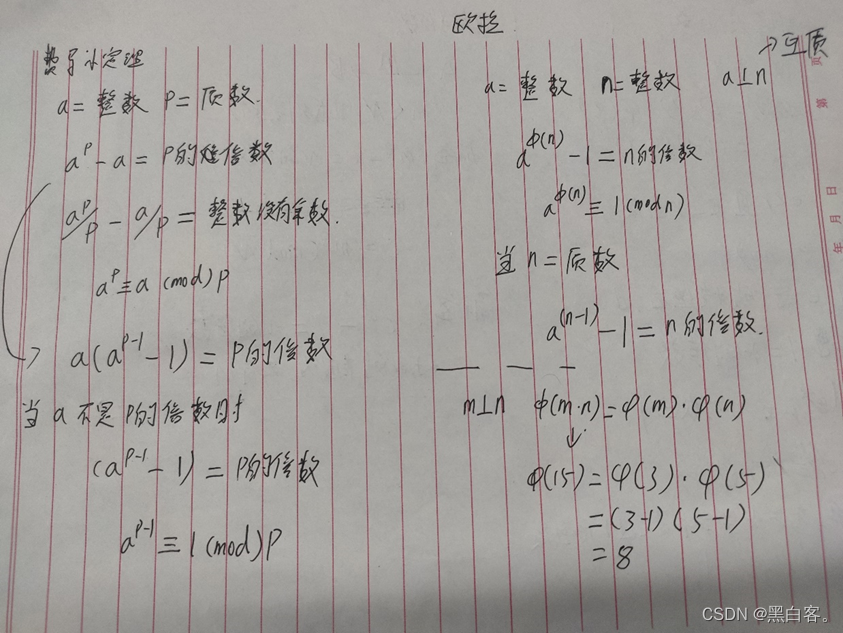 欧拉
费马小定理
a=整数 P=质数.
a^P-a=P的倍数
a^P/P-a/P=整数没有余数.
a^P≡a (mod)P
a(a^{P-1}-1)=P的倍数
当a不是P的倍数时
(a^{P-1}-1)=P的倍数
a^{P-1}≡1(mod)P
→互质
a=整数 n=整数 a⊥n
a^{φ(n)}-1=n的倍数
a^{φ(n)}≡1(mod n)
当n=质数
a^{(n-1)}-1=n的倍数.
m⊥n φ(m·n)=φ(m)·φ(n)
↓
φ(15)=φ(3)·φ(5)
=(3-1)(5-1)
=8
页
第
年 月 日
CSDN @黑白客。